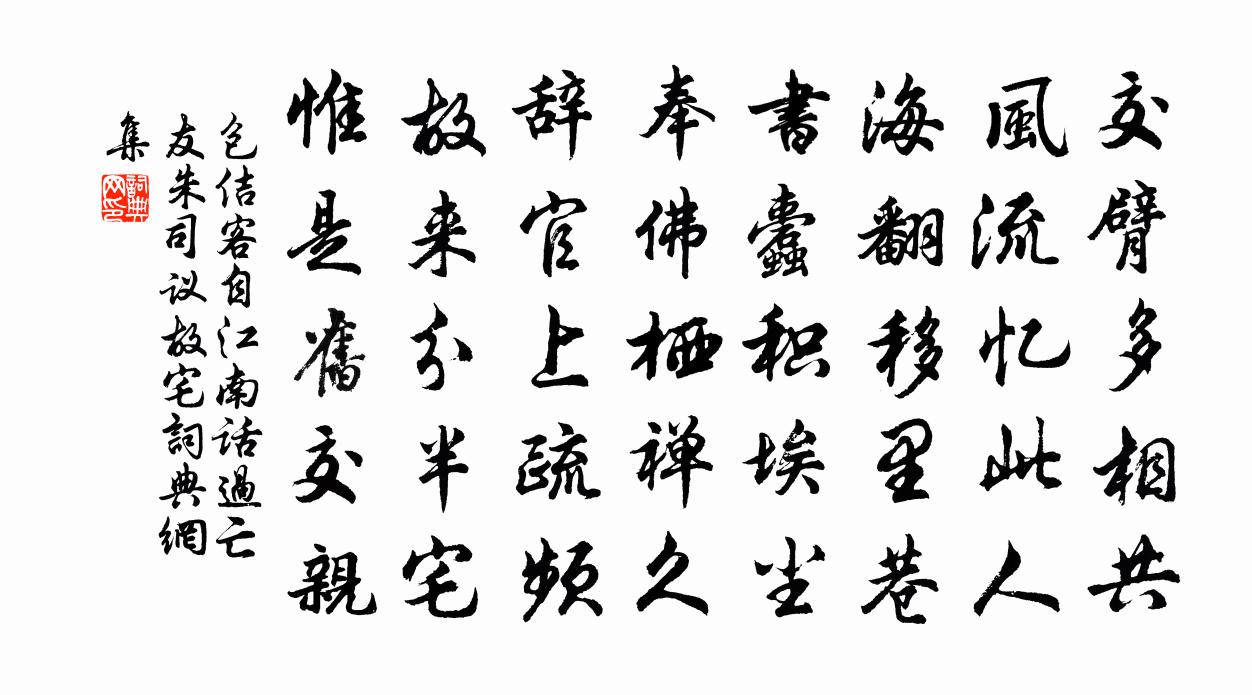 交臂多相共
風流忆此人
海翻移里巷
書蠹积埃尘
奉佛栖禅久
辞官上疏频
故来分半宅
惟是舊交親
包佶客自江南话過亡
友朱司议故宅詞典網
集
詞典
网印